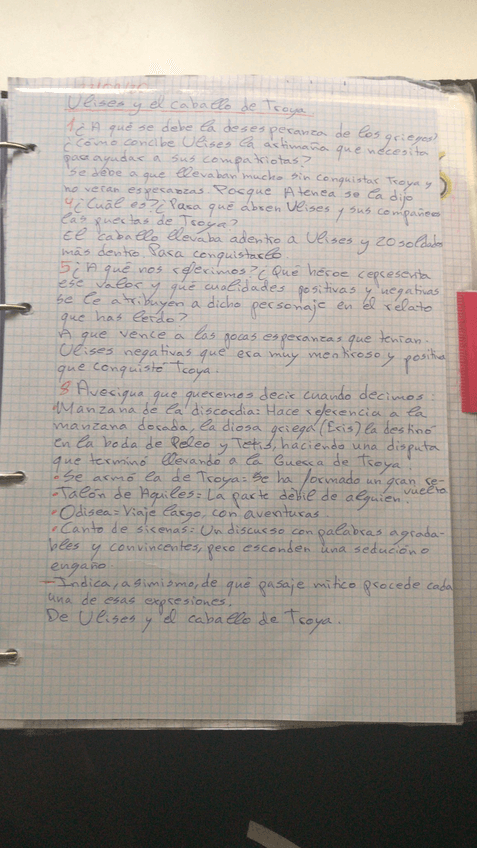 Ulises y el caballo de Troya
1¿A qué se debe la desesperanza de los griegos?
¿Cómo concibe Ulises la artimaña que necesita
para ayudar a sus compatriotas?
Se debe a que llevaban mucho sin conquistar Troya y
no veían esperanzas. Porque Atenea se la dijo
4¿Cuál es?¿Para qué abren Ulises y sus compañeros
las puertas de Troya?
El caballo llevaba adentro a Ulises y 20 soldados
más dentro. Para conquistarlo.
5¿A qué nos referimos?¿Qué héroe representa
ese valor y qué cualidades positivas y negativas
se le atribuyen a dicho personaje en el relato
que has leído?
A que vence a las pocas esperanzas que tenían.
Ulises negativas que era muy mentiroso y positiva
que conquistó Troya.
8 Averigua que queremos decir cuando decimos:
·Manzana de la discordia: Hace referencia a la
manzana dorada, la diosa griega (Eris) la destinó
en la boda de Peleo y Tetis, haciendo una disputa
que terminó llevando a la Guerra de Troya
·Se armó la de Troya: Se ha formado un gran re-
vuelto
·Talón de Aquiles: La parte débil de alguien.
·Odisea: Viaje largo, con aventuras
·Canto de sirenas: Un discurso con palabras agrada-
bles y convincentes, pero esconden una seducion o
engaño
-Indica, asimismo, de qué pasaje mítico procede cada
una de esas expresiones.
De Ulises y el caballo de Troya.